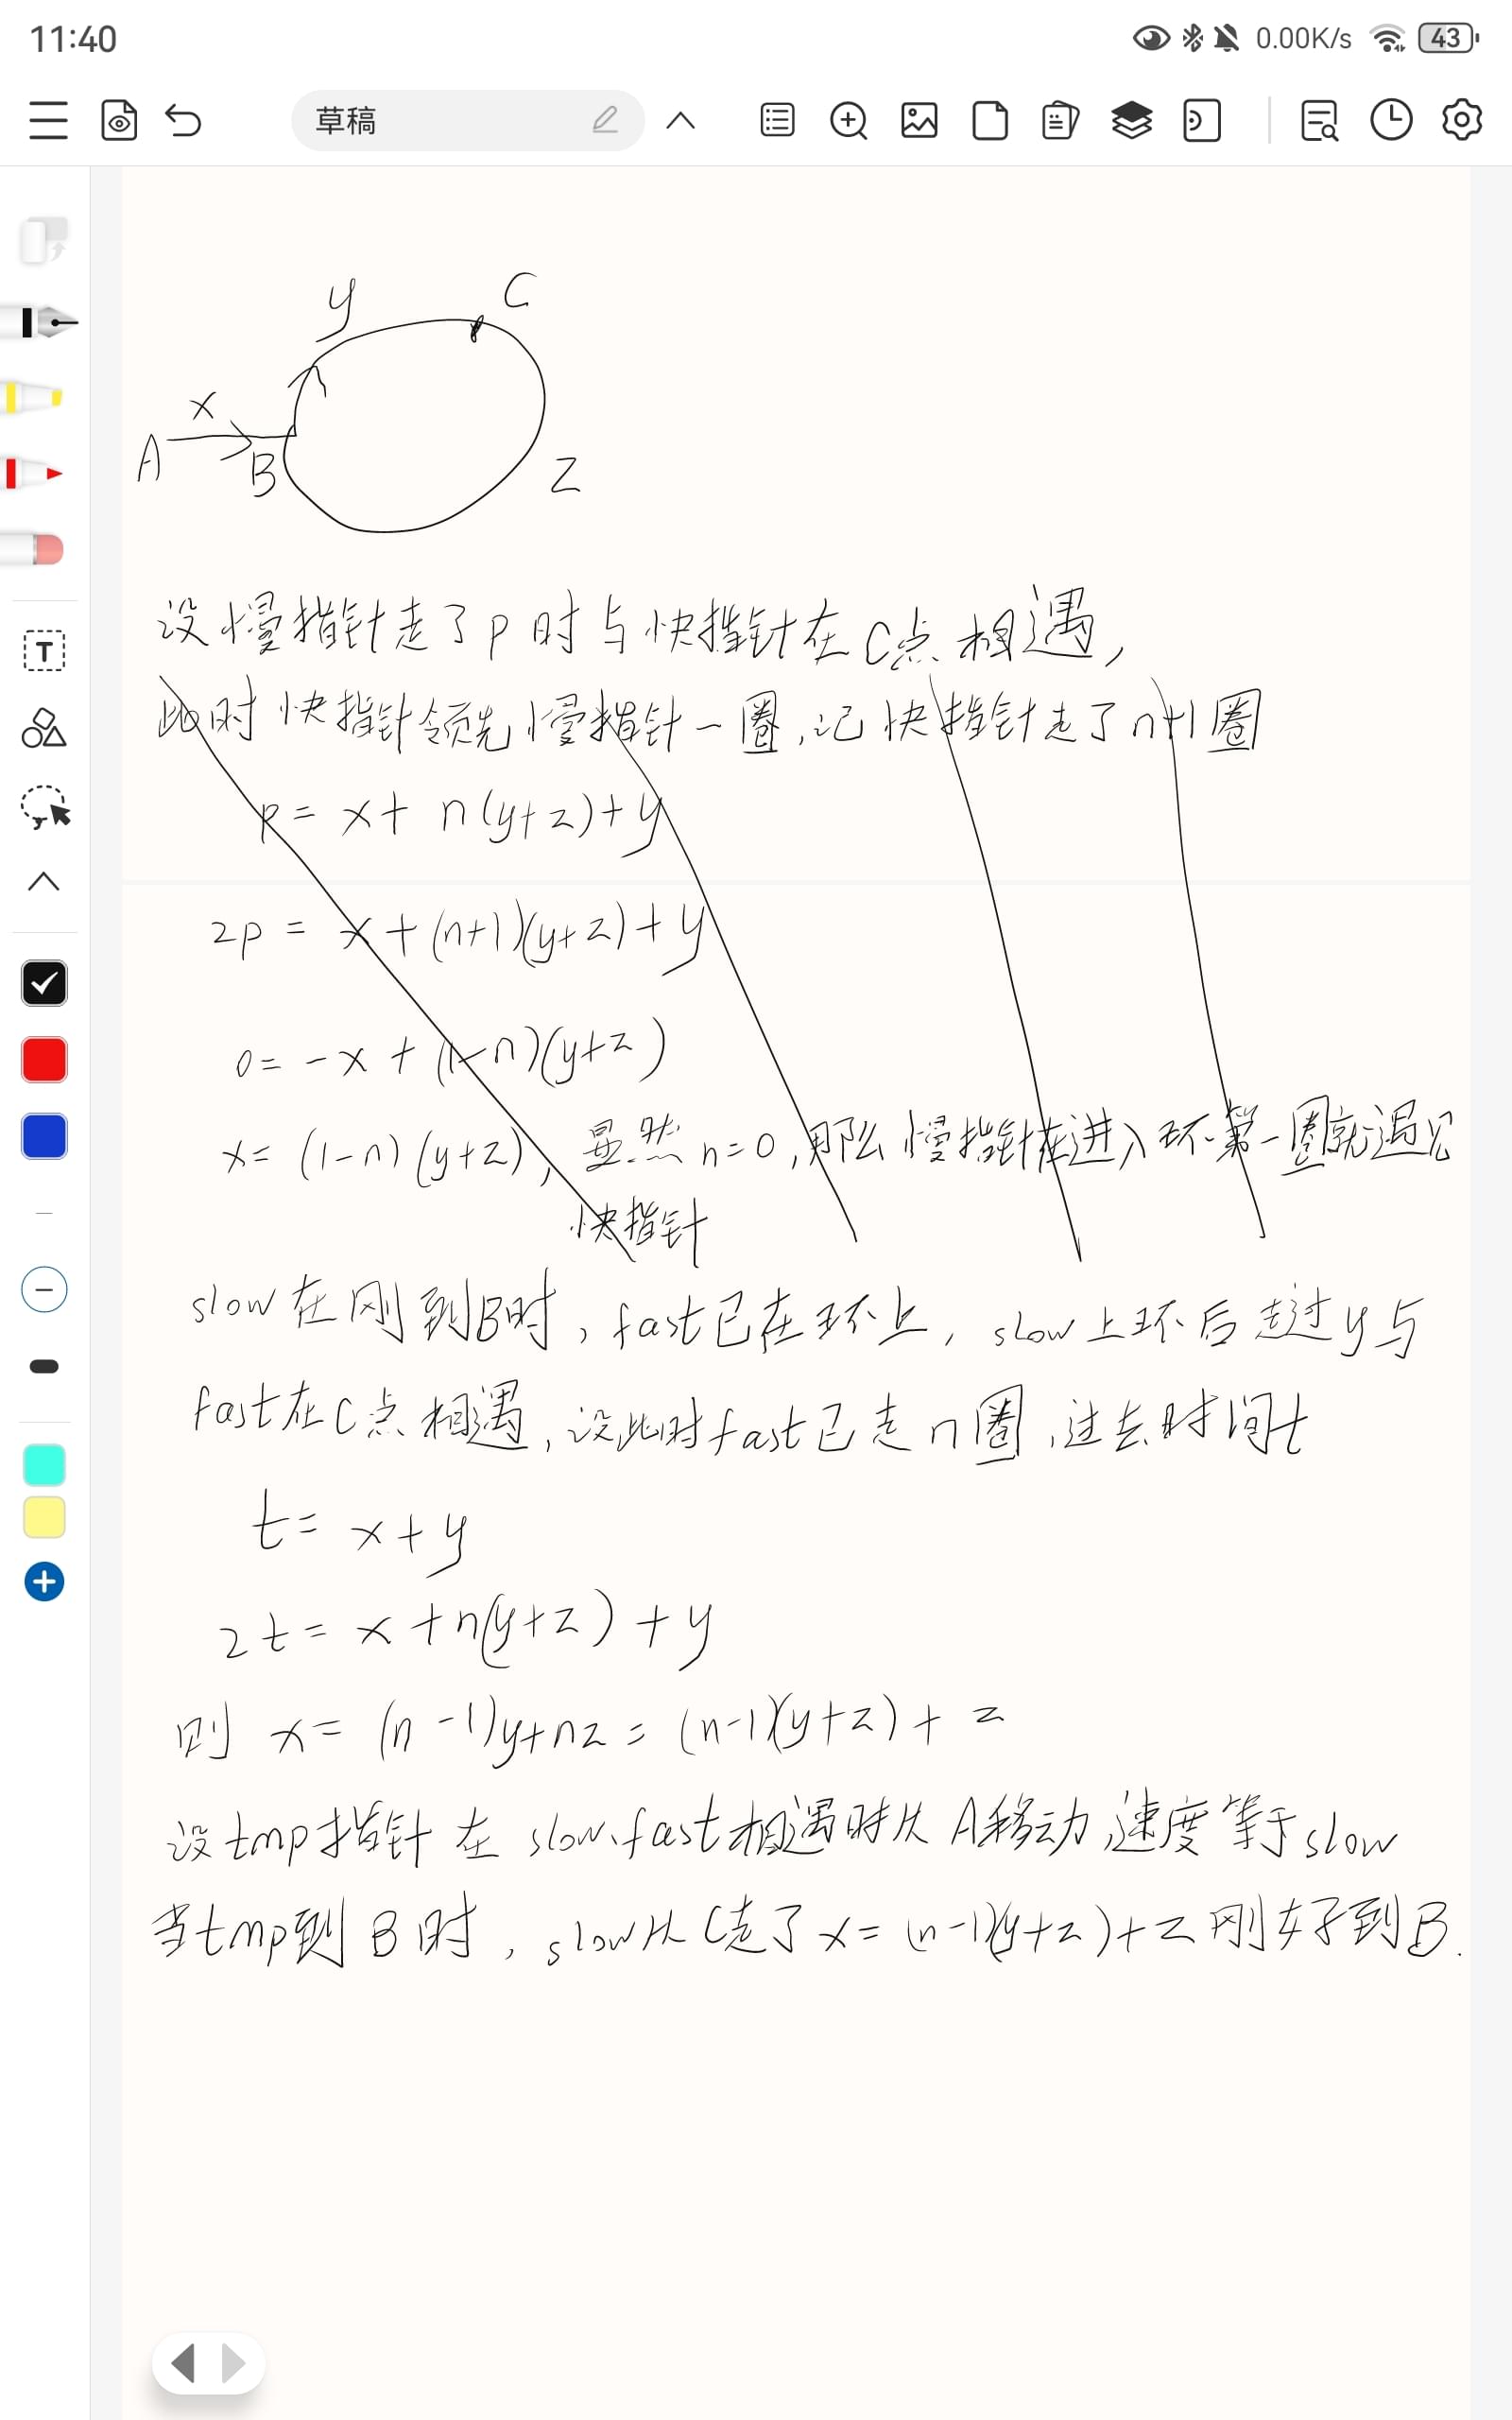 11:40
0.00K/s
43
草稿
T
y
C
x
A
B
z
设慢指针走了p时与快指针在C点相遇,
此时快指针领先慢指针一圈,记快指针走了n+1圈
p = x + n(y+z)+y
2p = x+(n+1)(y+z)+y
0 = -x + (1-n)(y+z)
x = (1-n)(y+z), 显然n=0,那么慢指针在进入环第一圈就遇见
快指针
slow在刚到B时,fast已在环上,slow上环后走过y与
fast在C点相遇,设此时fast已走n圈,过去时间t
t = x+y
2t = x+n(y+z)+y
则 x = (n-1)y+nz = (n-1)(y+z)+z
设tmp指针在slow、fast相遇时从A移动,速度等于slow
当tmp到B时,slow从C走了x=(n-1)(y+z)+z刚好到B.